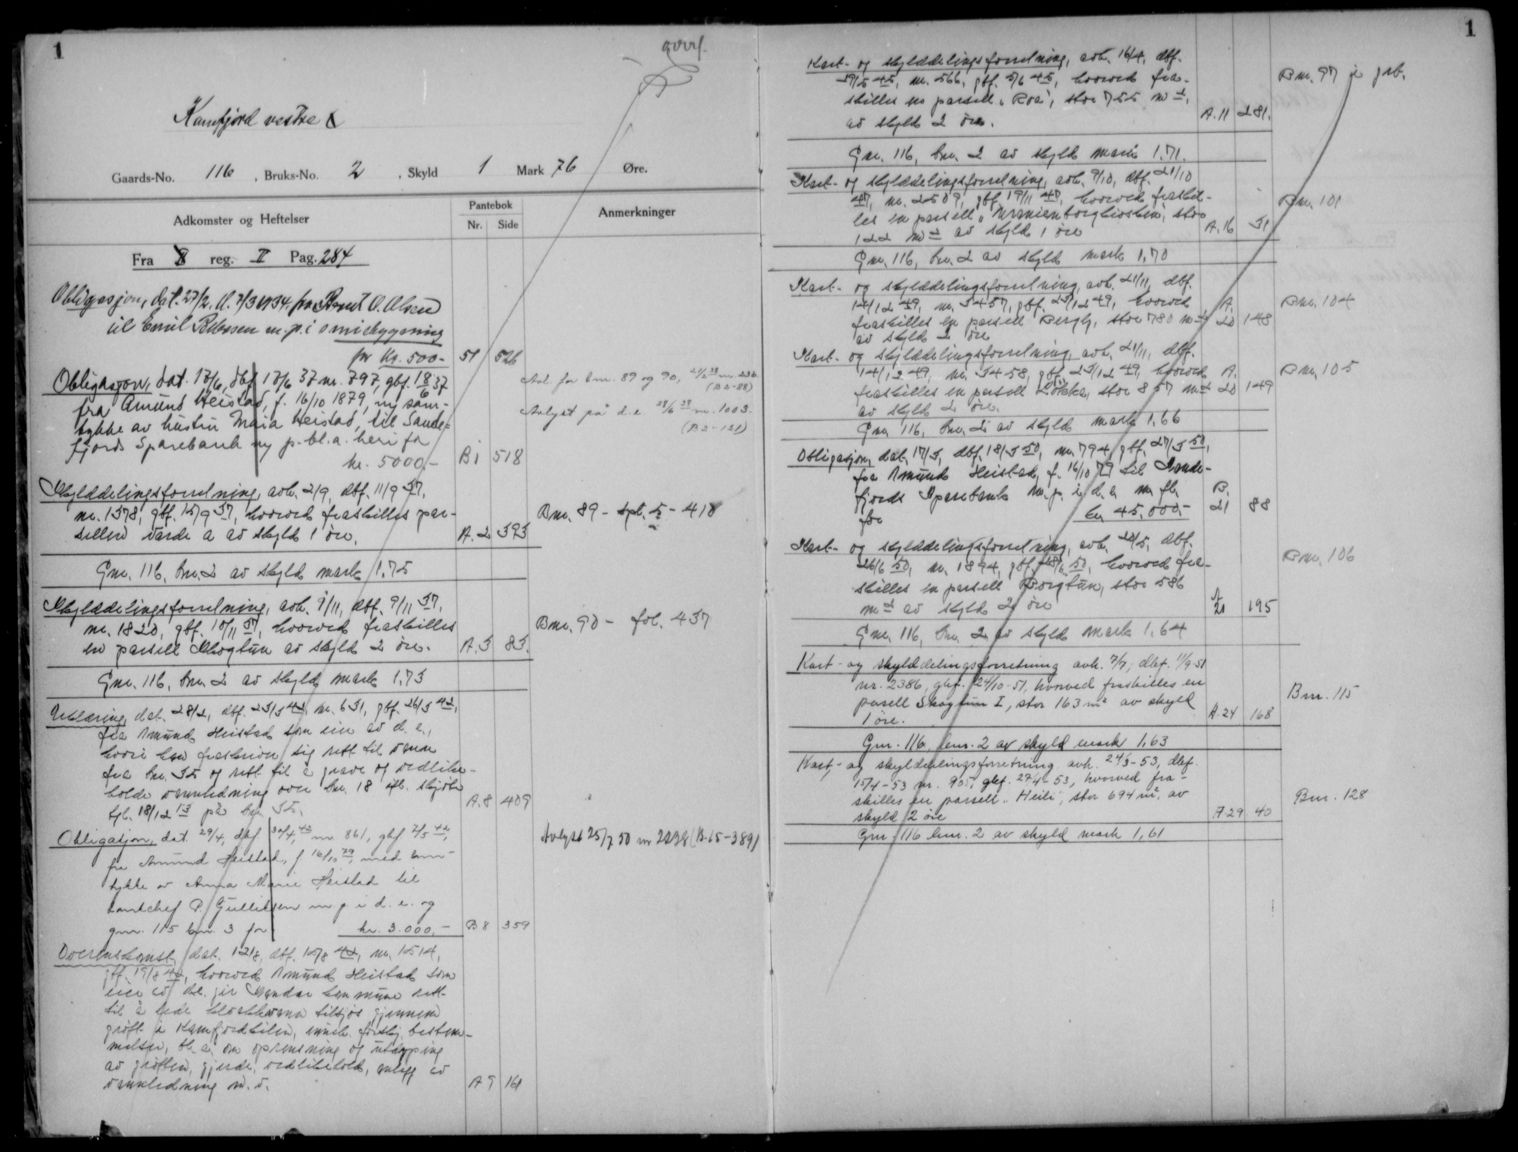 1
overf.
Kamfjord vestre
Gaards-No. 116, Bruks-No. 2, Skyld 1 Mark 76 Øre.
Adkomster og Heftelser
Pantebok
Nr. Side
Anmerkninger
Fra reg. II Pag. 284
Obligasjon, dat. 27/2, tl. 7/3 1934, fra O. Olsen
til Emil Pettersen m. p. i omibygning
for kr. 500- 51 526
Obligasjon, dat. 17/6, dbf 17/6 37 nr. 797, gbf 18/6 37
fra Amund Heistad, f. 16/10 1879, m. sam-
tykke av hustru Maia Heistad, til Sande-
fjords Sparebank m. p. bl. a. heri for
kr. 5000,- B 1 518
Avl. for bnr. 89 og 90,
(B 2-88)
Avlyst på d. e. 28/6 38 nr. 1003.
(B 2-131)
Skylddelingsforretning, avh. 2/9, dbf. 11/9 37,
nr. 1378, gbf. 15/9 37, hvorved fraskilles par-
sellen Varde a av skyld 1 øre. A. 2 393
Bnr. 89 - spl. 5 - 418
Gnr. 116, bnr. 2 av skyld mark 1,75
Skylddelingsforretning, avh. 1/11, dbf. 9/11 37,
nr. 1820, gbf. 10/11 37, hvorved fraskilles
en parsell Skogtun av skyld 2 øre. A. 3 83.
Bnr. 90 - fol. 437
Gnr. 116, bnr. 2 av skyld mark 1,73
Erklæring dat. 28/2, dbf. 25/3 42, nr. 631, gbf. 26/3 42,
fra Amund Heistad som eier av d. e.,
hvori han fraskriver sig rett til vann
fra bnr. 35 og rett til å grave og vedlike-
holde vannledning over bnr. 18 ifl. skjøte
tgl. 18/12 13 på bnr. 35. A. 8 409
Obligasjon, dat 29/4, dbf 30/4 42 nr 861, gbf 2/5 42,
fra Amund Heistad, f 16/10 79, med sam-
tykke av Anna Marie Heistad til
P. Gulliksen m p i d. e. og
gnr. 115 bnr. 3 for kr. 3.000,- B 8 359
Avlyst 25/7 50 nr 2238 (B 15-389)
Overenskomst, dat. 12/8, dbf. 15/8 42, nr. 1514,
gbf. 19/8 42, hvorved Amund Heistad som
eier av d.e. gir Sandar kommune rett
til å lede kloakkvann tilsjøs gjennem
grøft i Kamfjordkilen, bestem-
melser, bl. a. om oprensning og utdypning
av grøften, gjerde, vedlikehold, anlegg av
vannledning m. v. A 9 161
1
Kart- og skylddelingsforretning, avh. 16/4, dbf.
29/5 45, nr. 566, gbf. 5/6 45, hvorved fra-
skilles en parsell "Roa", stor 755 m2,
av skyld 2 øre. A. 11 281.
Bnr. 97
Gnr. 116, bnr. 2 av skyld mark 1,71.
Kart- og skylddelingsforretning, avh. 9/10, dbf. 21/10
47, nr. 2509, gbf. 19/11 47, hvorved fraskil-
les en parsell "Uranienborgkiosken, stor
122 m2 av skyld 1 øre A. 16 31
Bnr. 101
Gnr. 116, bnr. 2 av skyld mark 1,70
Kart- og skylddelingsforretning, avh. 21/11, dbf.
14/12 49, nr. 3457, gbf. 23/12 49, hvorved
fraskilles en parsell Bergly, stor 780 m2
av skyld 2 øre A. 20 148
Bnr. 104
Kart- og skylddelingsforretning, avh. 21/11, dbf.
14/12 49, nr. 3458, gbf. 23/12 49, hvorved
fraskilles en parsell Løkka, stor 857 m2
av skyld 2 øre. A. 20 149
Bnr. 105
Gnr. 116, bnr. 2 av skyld mark 1,66
Obligasjon, dat. 17/3, dbf. 18/3 50, nr. 794, gbf. 27/3 50,
fra Amund Heistad, f. 16/10 79 til Sande-
fjords Sparebank m. p. i d. e. m. fl.
for kr 45.000.- B. 21 88
Kart- og skylddelingsforretning, avh. 20/5, dbf.
26/6 50, nr. 1894, gbf. 50, hvorved fra-
skilles en parsell Borgtun, stor 586
m2 av skyld 2 øre A 21 195
Bnr. 106
Gnr. 116, bnr. 2 av skyld mark 1,64
Kart- og skylddelingsforretning avh. 7/7, dbf. 11/9-51
nr. 2386, gbf. 24/10-51, hvorved fraskilles en
parsell Skogtun I, stor 163 m2 av skyld
1 øre. A 24 168
Bnr. 115
Gnr. 116 bnr. 2 av skyld mark 1,63
Kart- og skylddelingsforretning avh. 24/3-53, dbf.
15/4-53 nr. 905, gbf. 27/4-53, hvorved fra-
skilles en parsell "Heili", stor 694 m2, av
skyld 2 øre A 29 40
Bnr. 128
Gnr. 116 bnr. 2 av skyld mark 1,61